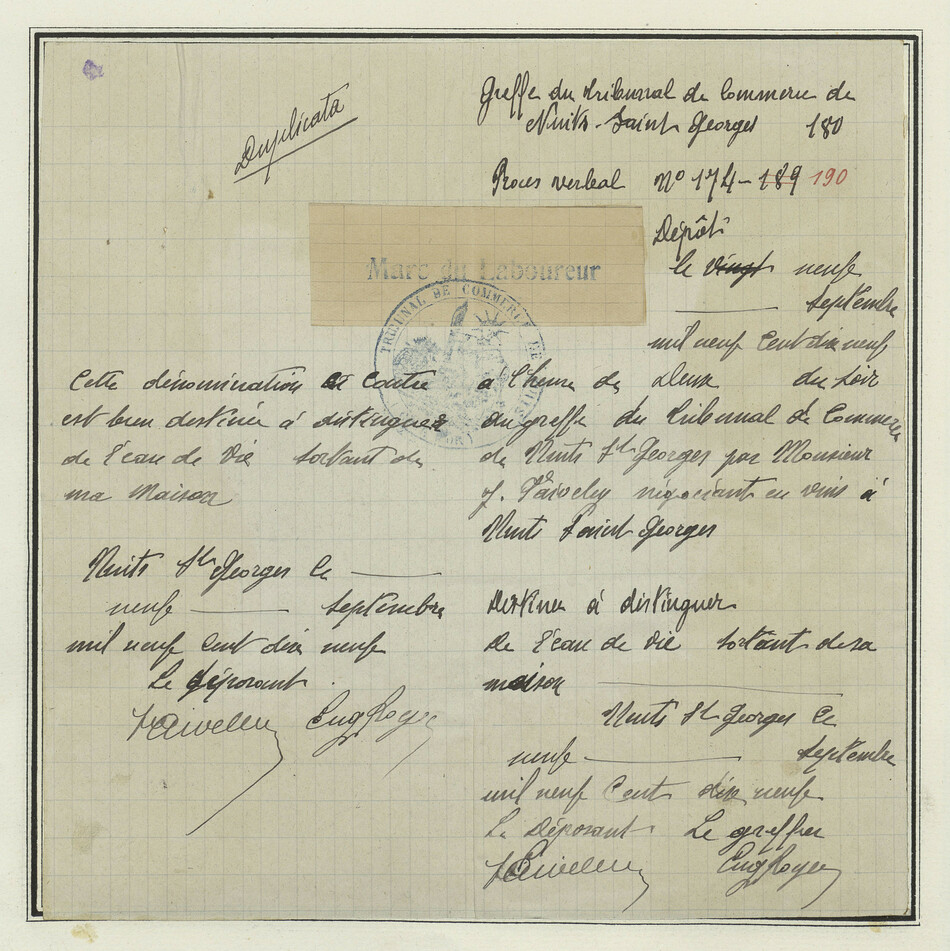 Duplicata
Greffe du tribunal de Commerce de
Nuits-Saint Georges 180
Proces verbal Nº 174-189 190
Marc du Laboureur
TRIBUNAL DE COMMERCE DE
Cette dénomination et contre
est bien destinée à distinguer
de l'eau de vie sortant de
ma maison
Nuits St Georges le
neuf septembre
mil neuf cent dix neuf
Le déposant
Eug Royer
Dépôt
le vingt neuf
septembre
mil neuf cent dix neuf
à l'heure de deux du soir
au greffe du tribunal de Commerce
de Nuits St Georges par Monsieur
J. négociant en vins à
Nuits Saint Georges
Destinée à distinguer
de l'eau de vie sortant de sa
maison
Nuits St Georges le
neuf septembre
mil neuf cents dix neuf
Le Déposant Le greffier
Eug Royer